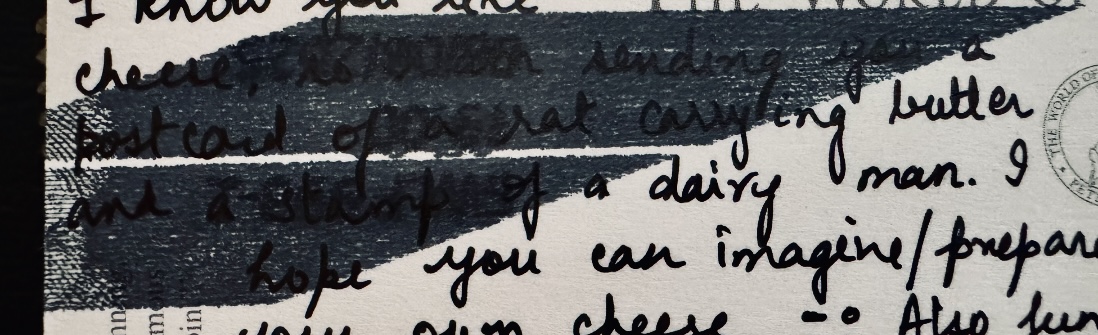 I know you like
THE WORLD OF
cheese, so sending you a
postcard of a rat carrying butter
and a stamp of a dairy man. I
hope you can imagine/prepare
your own cheese Also
THE WORLD OF